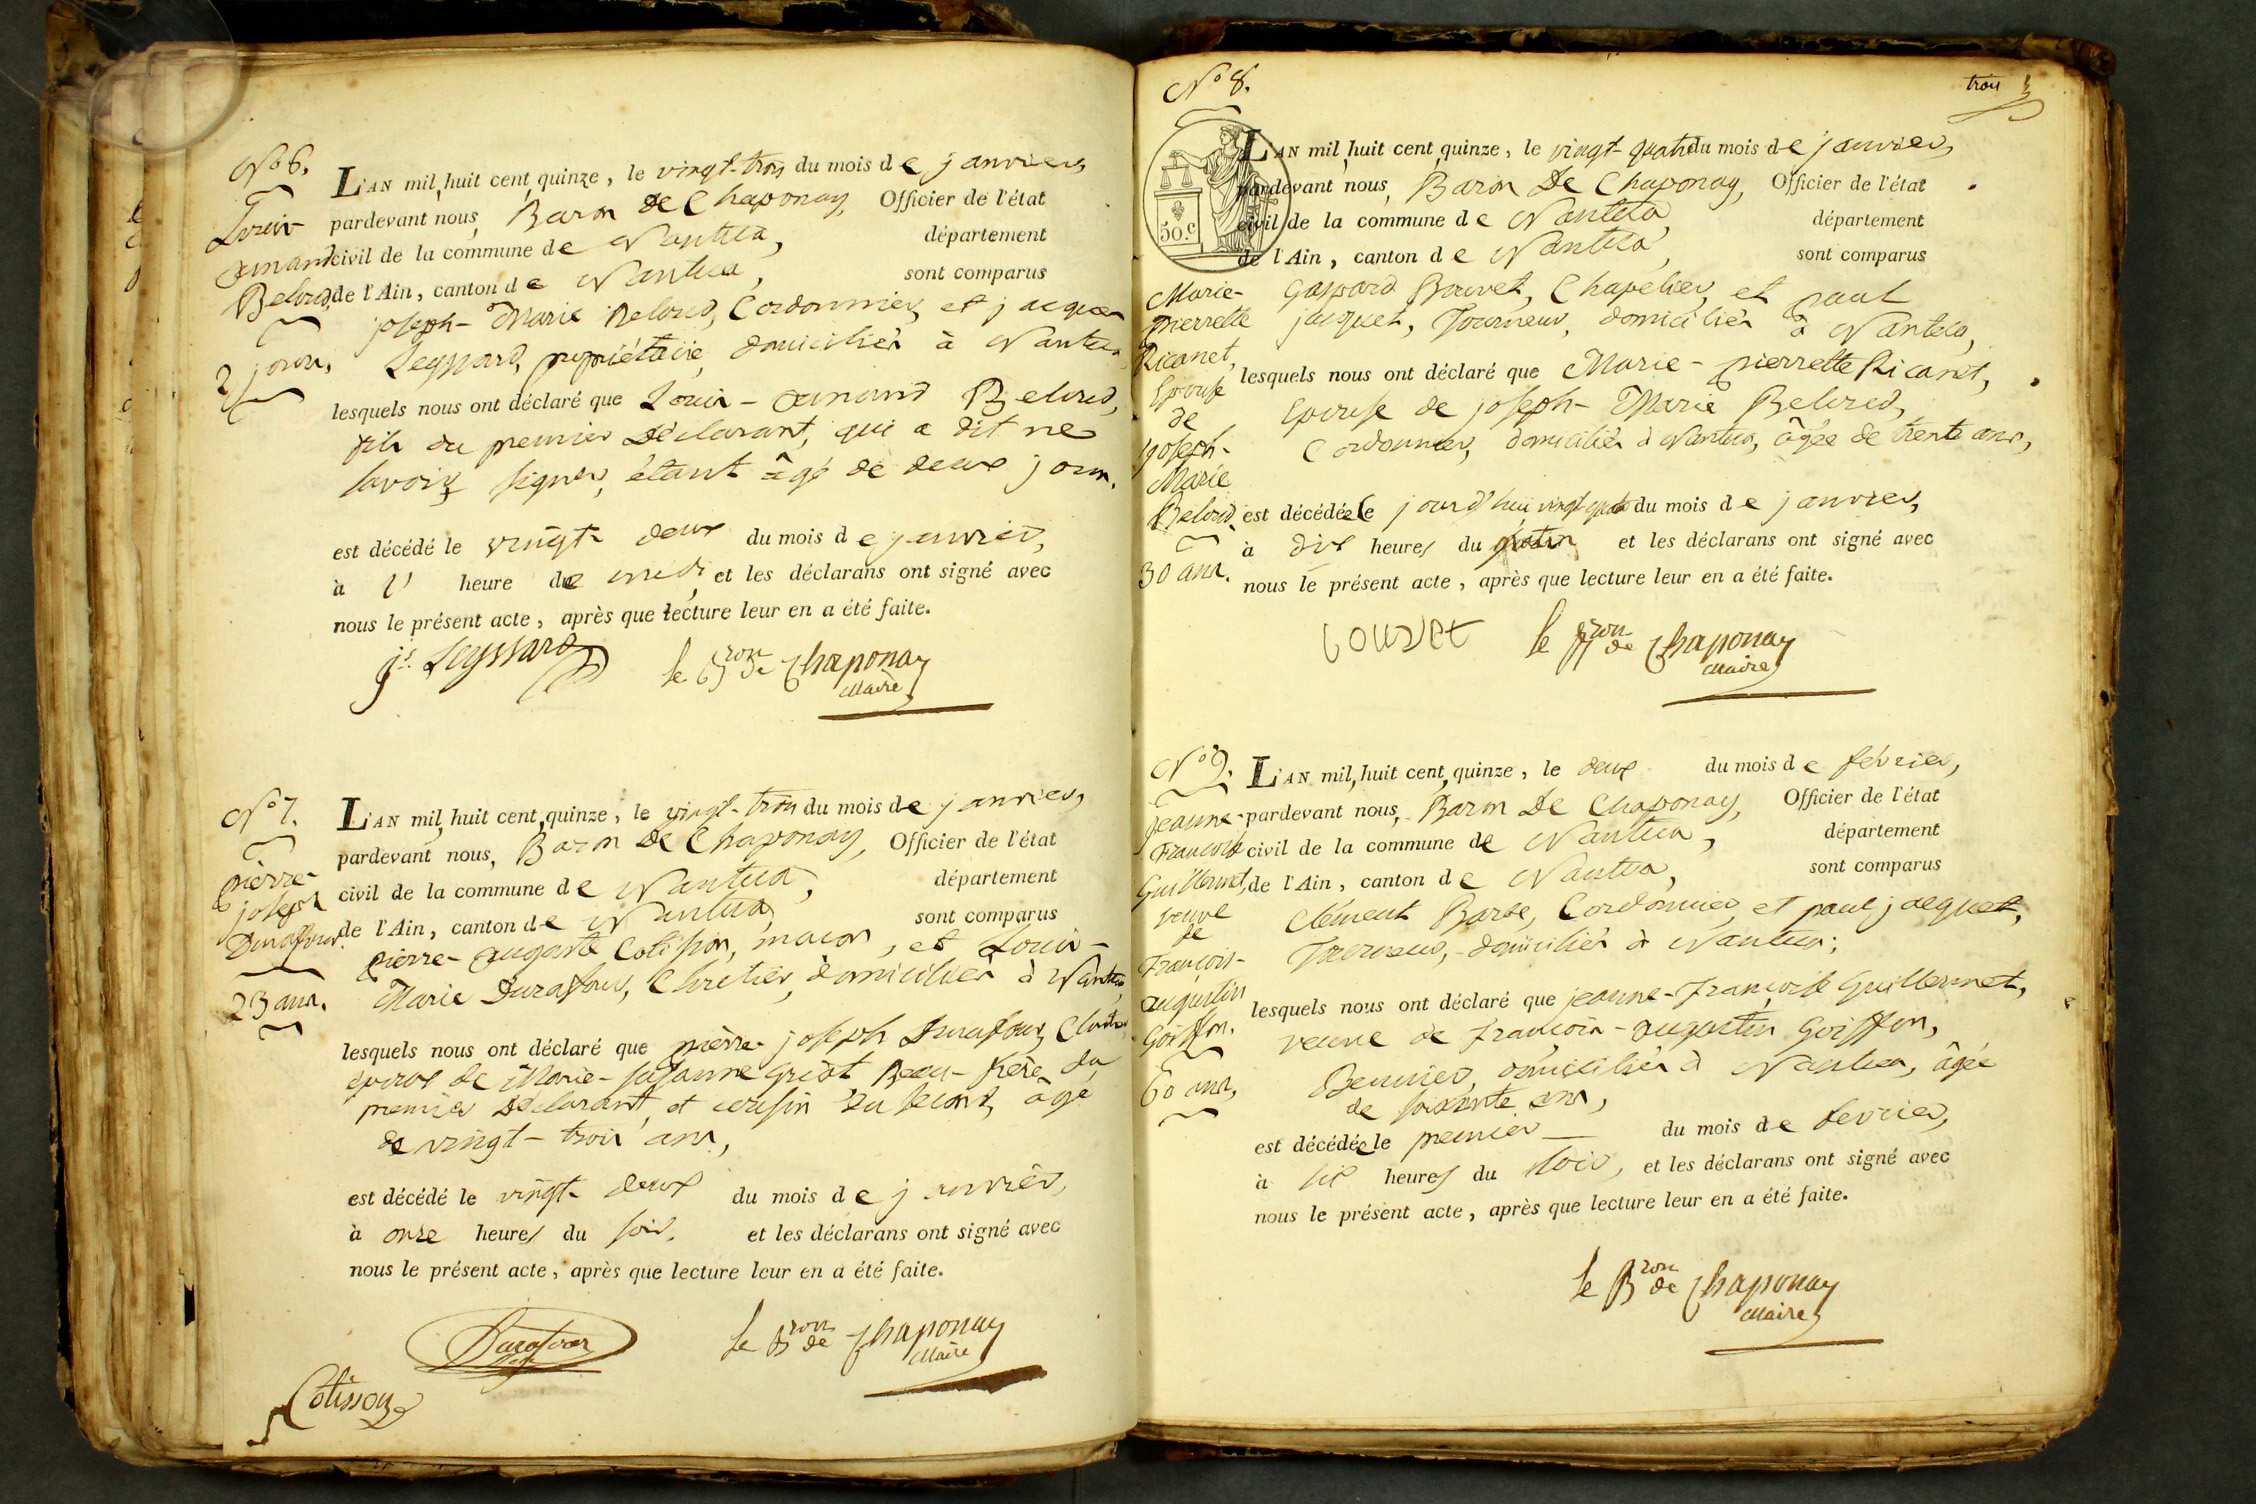 N° 6.
Louis-
amand
Beloud,
2 jours.
L'AN mil huit cent quinze, le vingt-trois du mois de janvier,
pardevant nous, Baron De Chaponay, Officier de l'état
civil de la commune de Nantua, département
de l'Ain, canton de Nantua, sont comparus
joseph-Marie Beloud, Cordonnier, et jacques
Leyssard, propriétaire, domiciliés à Nantua,
lesquels nous ont déclaré que Louis-amand Beloud,
fils du premier Déclarant, qui a dit ne
savoir signer, étant âgé de deux jours.
est décédé le vingt-deux du mois de janvier,
à l' heure de midi, et les déclarans ont signé avec
nous le présent acte, après que lecture leur en a été faite.
js. Leyssard le Bron de Chaponay
Maire
N° 7.
pierre-
joseph
Durafour.
23 ans.
L'AN mil huit cent quinze, le vingt-trois du mois de janvier,
pardevant nous, Baron De Chaponay, Officier de l'état
civil de la commune de Nantua, département
de l'Ain, canton de Nantua, sont comparus
pierre-auguste Cotisson, maçon, et Louis-
Marie Durafour, Cloutier, domiciliés à Nantua,
lesquels nous ont déclaré que pierre-joseph Durafour, Cloutier,
époux de Marie-susanne Griot Beau-frère du
premier Déclarant, et cousin du second, âgé
de vingt-trois ans,
est décédé le vingt-deux du mois de janvier,
à onze heures du soir, et les déclarans ont signé avec
nous le présent acte, après que lecture leur en a été faite.
Durafour le Bron de Chaponay
Maire
Cotisson
N° 8. trois 3
50.c
Marie-
pierrette
Ricanet,
Epouse
de
joseph-
Marie
Beloud.
30 ans.
L'AN mil huit cent quinze, le vingt-quatre du mois de janvier,
pardevant nous, Baron De Chaponay, Officier de l'état
civil de la commune de Nantua, département
de l'Ain, canton de Nantua, sont comparus
Gaspard Bouvet, Chapelier, et paul
jacquet, Tourneur, domiciliés à Nantua,
lesquels nous ont déclaré que Marie-pierrette Ricanet,
Epouse de joseph-Marie Beloud,
Cordonnier, domiciliés à Nantua, âgée de trente ans,
est décédée le jourd'hui vingt-quatre du mois de janvier,
à dix heures du matin et les déclarans ont signé avec
nous le présent acte, après que lecture leur en a été faite.
bouvet le Bron de Chaponay
Maire
N° 9.
jeanne-
Françoise
Guillermet,
veuve
de
François-
augustin
Goiffon.
60 ans,
L'AN mil huit cent quinze, le deux du mois de février,
pardevant nous, Baron De Chaponay, Officier de l'état
civil de la commune de Nantua, département
de l'Ain, canton de Nantua, sont comparus
Clément Barbe, Cordonnier, et paul jacquet,
Tourneur, domiciliés à Nantua;
lesquels nous ont déclaré que jeanne-Françoise Guillermet,
veuve de françois-augustin Goiffon,
domiciliés à Nantua, âgée
de soixante ans,
est décédée le premier du mois de fevrier,
à six heures du soir, et les déclarans ont signé avec
nous le présent acte, après que lecture leur en a été faite.
le Bron de Chaponay
Maire